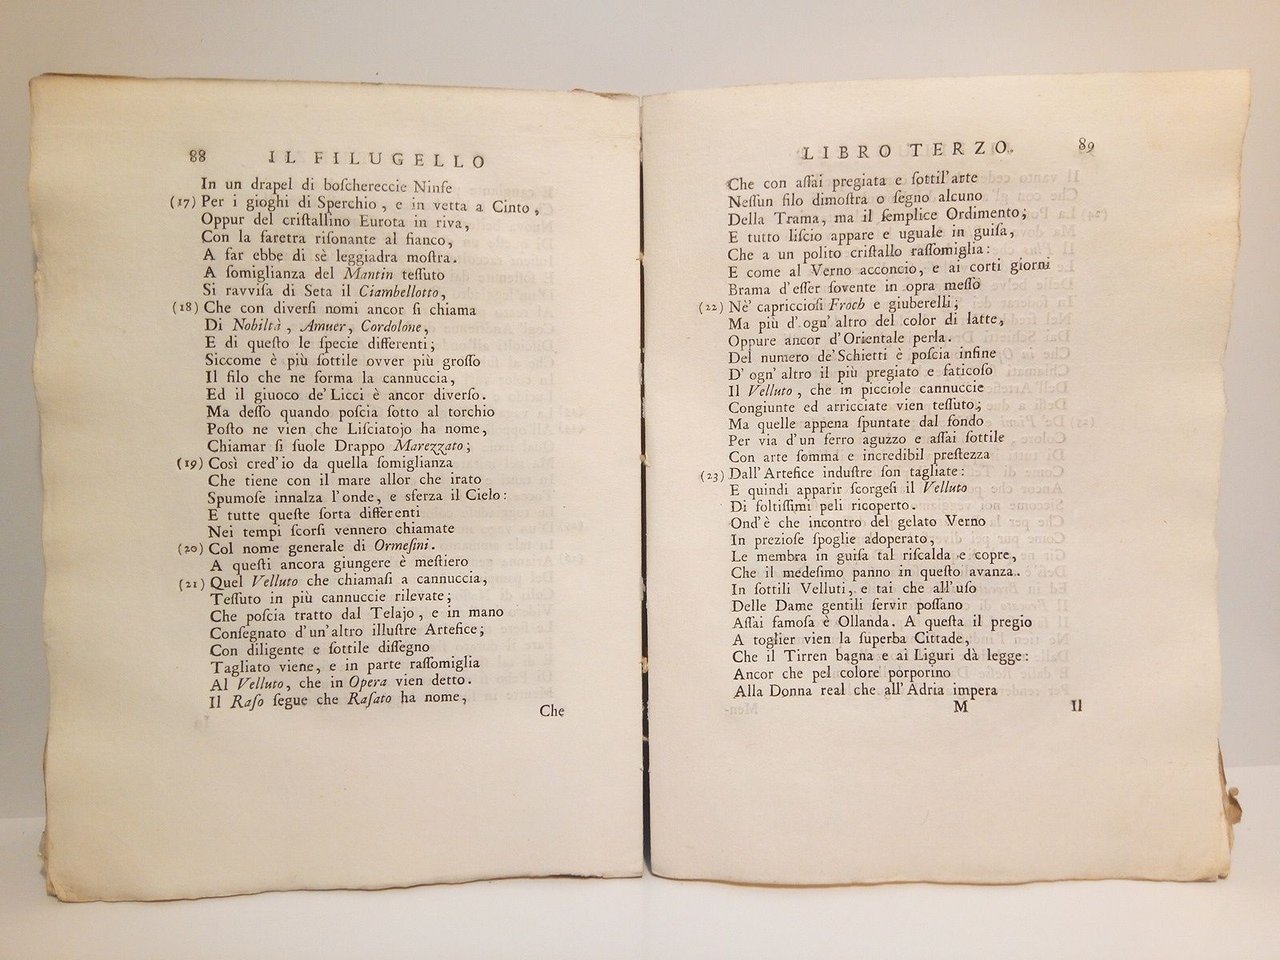 88 IL FILUGELLO
In un drapel di boſchereccie Ninfe
(17) Per i gioghi di Sperchio, e in vetta a Cinto,
Oppur del criſtallino Eurota in riva,
Con la faretra riſonante al fianco,
A far ebbe di sè leggiadra moſtra.
A ſomiglianza del Mantin teſſuto
Si ravviſa di Seta il Ciambellotto,
(18) Che con diverſi nomi ancor ſi chiama
Di Nobiltà, Amuer, Cordolone,
E di queſto le ſpecie differenti;
Siccome è più ſottile ovver più groſſo
Il filo che ne forma la cannuccia,
Ed il giuoco de'Licci è ancor diverſo.
Ma deſſo quando poſcia ſotto al torchio
Poſto ne vien che Liſciatojo ha nome,
Chiamar ſi ſuole Drappo Marezzato;
(19) Così cred'io da quella ſomiglianza
Che tiene con il mare allor che irato
Spumoſe innalza l'onde, e sferza il Cielo:
E tutte queſte ſorta differenti
Nei tempi ſcorſi vennero chiamate
(20) Col nome generale di Ormeſini.
A queſti ancora giungere è meſtiero
(21) Quel Velluto che chiamaſi a cannuccia,
Teſſuto in più cannuccie rilevate;
Che poſcia tratto dal Telajo, e in mano
Conſegnato d'un'altro illuſtre Artefice;
Con diligente e ſottile diſſegno
Tagliato viene, e in parte raſſomiglia
Al Velluto, che in Opera vien detto.
Il Raſo ſegue che Raſato ha nome,
Che
LIBRO TERZO. 89
Che con aſſai pregiata e ſottil'arte
Neſſun filo dimoſtra o ſegno alcuno
Della Trama, ma il ſemplice Ordimento;
E tutto liſcio appare e uguale in guiſa,
Che a un polito criſtallo raſſomiglia:
E come al Verno acconcio, e ai corti giorni
Brama d'eſſer ſovente in opra meſſo
(22) Nè' capriccioſi Froch e giuberelli;
Ma più d'ogn'altro del color di latte,
Oppure ancor d'Orientale perla.
Del numero de'Schietti è poſcia infine
D'ogn'altro il più pregiato e faticoſo
Il Velluto, che in picciole cannuccie
Congiunte ed arricciate vien teſſuto;
Ma quelle appena ſpuntate dal fondo
Per via d'un ferro aguzzo e aſſai ſottile
Con arte ſomma e incredibil preſtezza
(23) Dall'Artefice induſtre ſon tagliate:
E quindi apparir ſcorgeſi il Velluto
Di foltiſſimi peli ricoperto.
Ond'è che incontro del gelato Verno
In prezioſe ſpoglie adoperato,
Le membra in guiſa tal riſcalda e copre,
Che il medeſimo panno in queſto avanza.
In ſottili Velluti, e tai che all'uſo
Delle Dame gentili ſervir poſſano
Aſſai famoſa è Ollanda. A queſta il pregio
A toglier vien la ſuperba Cittade,
Che il Tirren bagna e ai Liguri dà legge:
Ancor che pel colore porporino
Alla Donna real che all'Adria impera
M Il